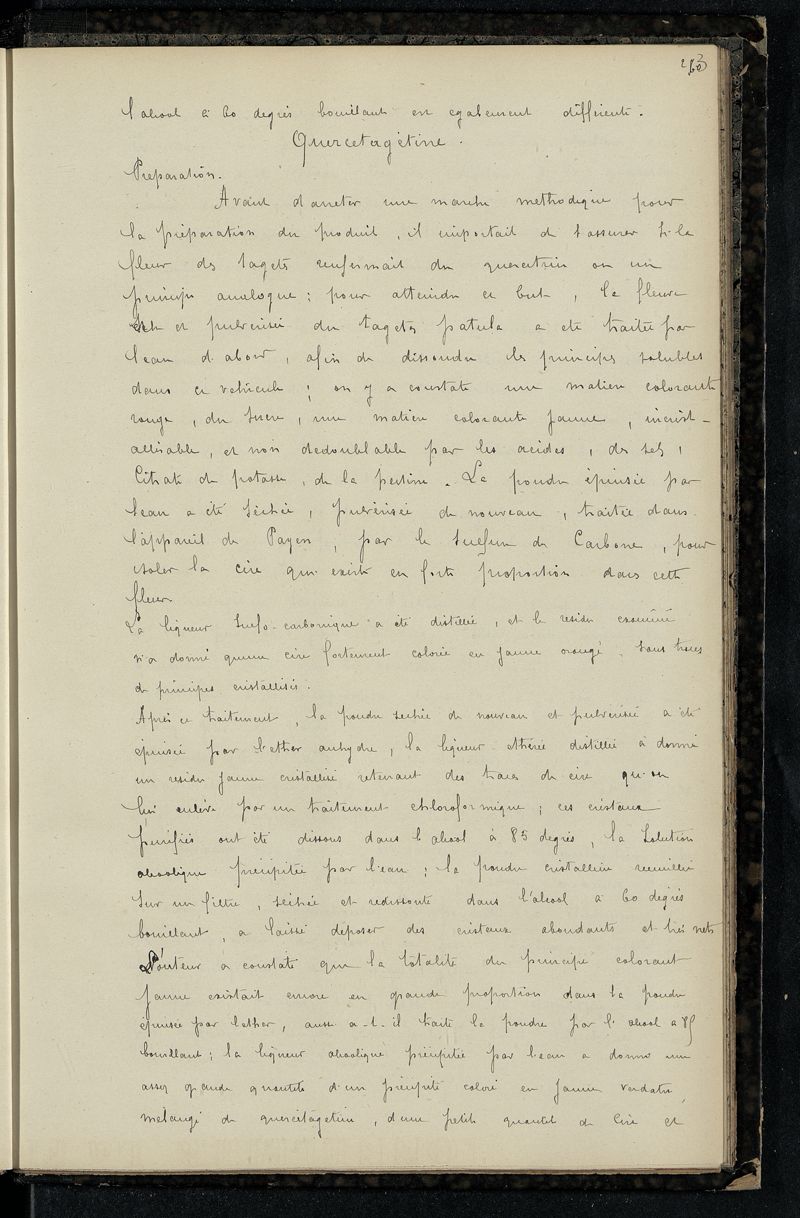 l'alcool à 60 degrés bouillant est egalement différente.
Quercetagetine.
Preparation.
Avant d'arreter une marche methodique pour
la préparation du produit, il importait de s'assurer si la
fleur des tagets renfermait du quercitrin ou un
principe analogue; pour atteindre ce but, la fleur
seche et pulverisée du tagetes patula a eté traitée par
l'eau d'abord, afin de dissoudre les principes solubles
dans ce vehicule; on y a constaté une matiere colorante
rouge, du sucre, une matiere colorante jaune, incrist-
allisable, et non dedoublable par les acides, des sels,
Citrate de potasse, de la pectine. La poudre épuisée par
l'eau a été séchée, pulvérisée de nouveau, traitée dans
l'appareil de Payen, par le sulfure de Carbone, pour
isoler la cire qui existe en forte proportion dans cette
fleur.
La liqueur sulfo-carbonique a été distillée, et le residu examiné
n'a donné qu'une cire fortement colorée en jaune orangé, sans traces
de principes cristallisés.
Après ce traitement, la poudre sechée de nouveau et pulvérisée a été
épuisée par l'ether anhydre, la liqueur etherée distillée a donné
un residu jaune cristallisé retenant des traces de cire qu'on
lui enlève par un traitement chloroformique; ces cristaux
purifiés ont été dissous dans l'alcool à 85 degrés, la solution
alcoolique précipitée par l'eau; la poudre cristalline recueillie
sur un filtre, séchée et redissoute dans l'alcool à 60 degrés
bouillant, a laissé deposer des cristaux abondants et très nets
L'auteur a constaté que la totalité du principe colorant
jaune existait encore en grande proportion dans la poudre
épuisée par l'ether, aussi a-t-il traité la poudre par l'alcool a 85
bouillant; la liqueur alcoolique précipitée par l'eau a donné une
assez grande quantité d'un précipité coloré en jaune verdatre,
mélangé de quercetagetine, d'une petite quantité de Cire et